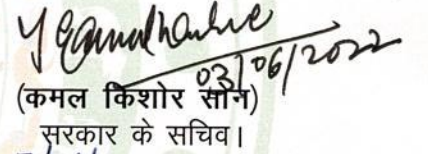 03/06/2022
(कमल किशोर सोन)
सरकार के सचिव।